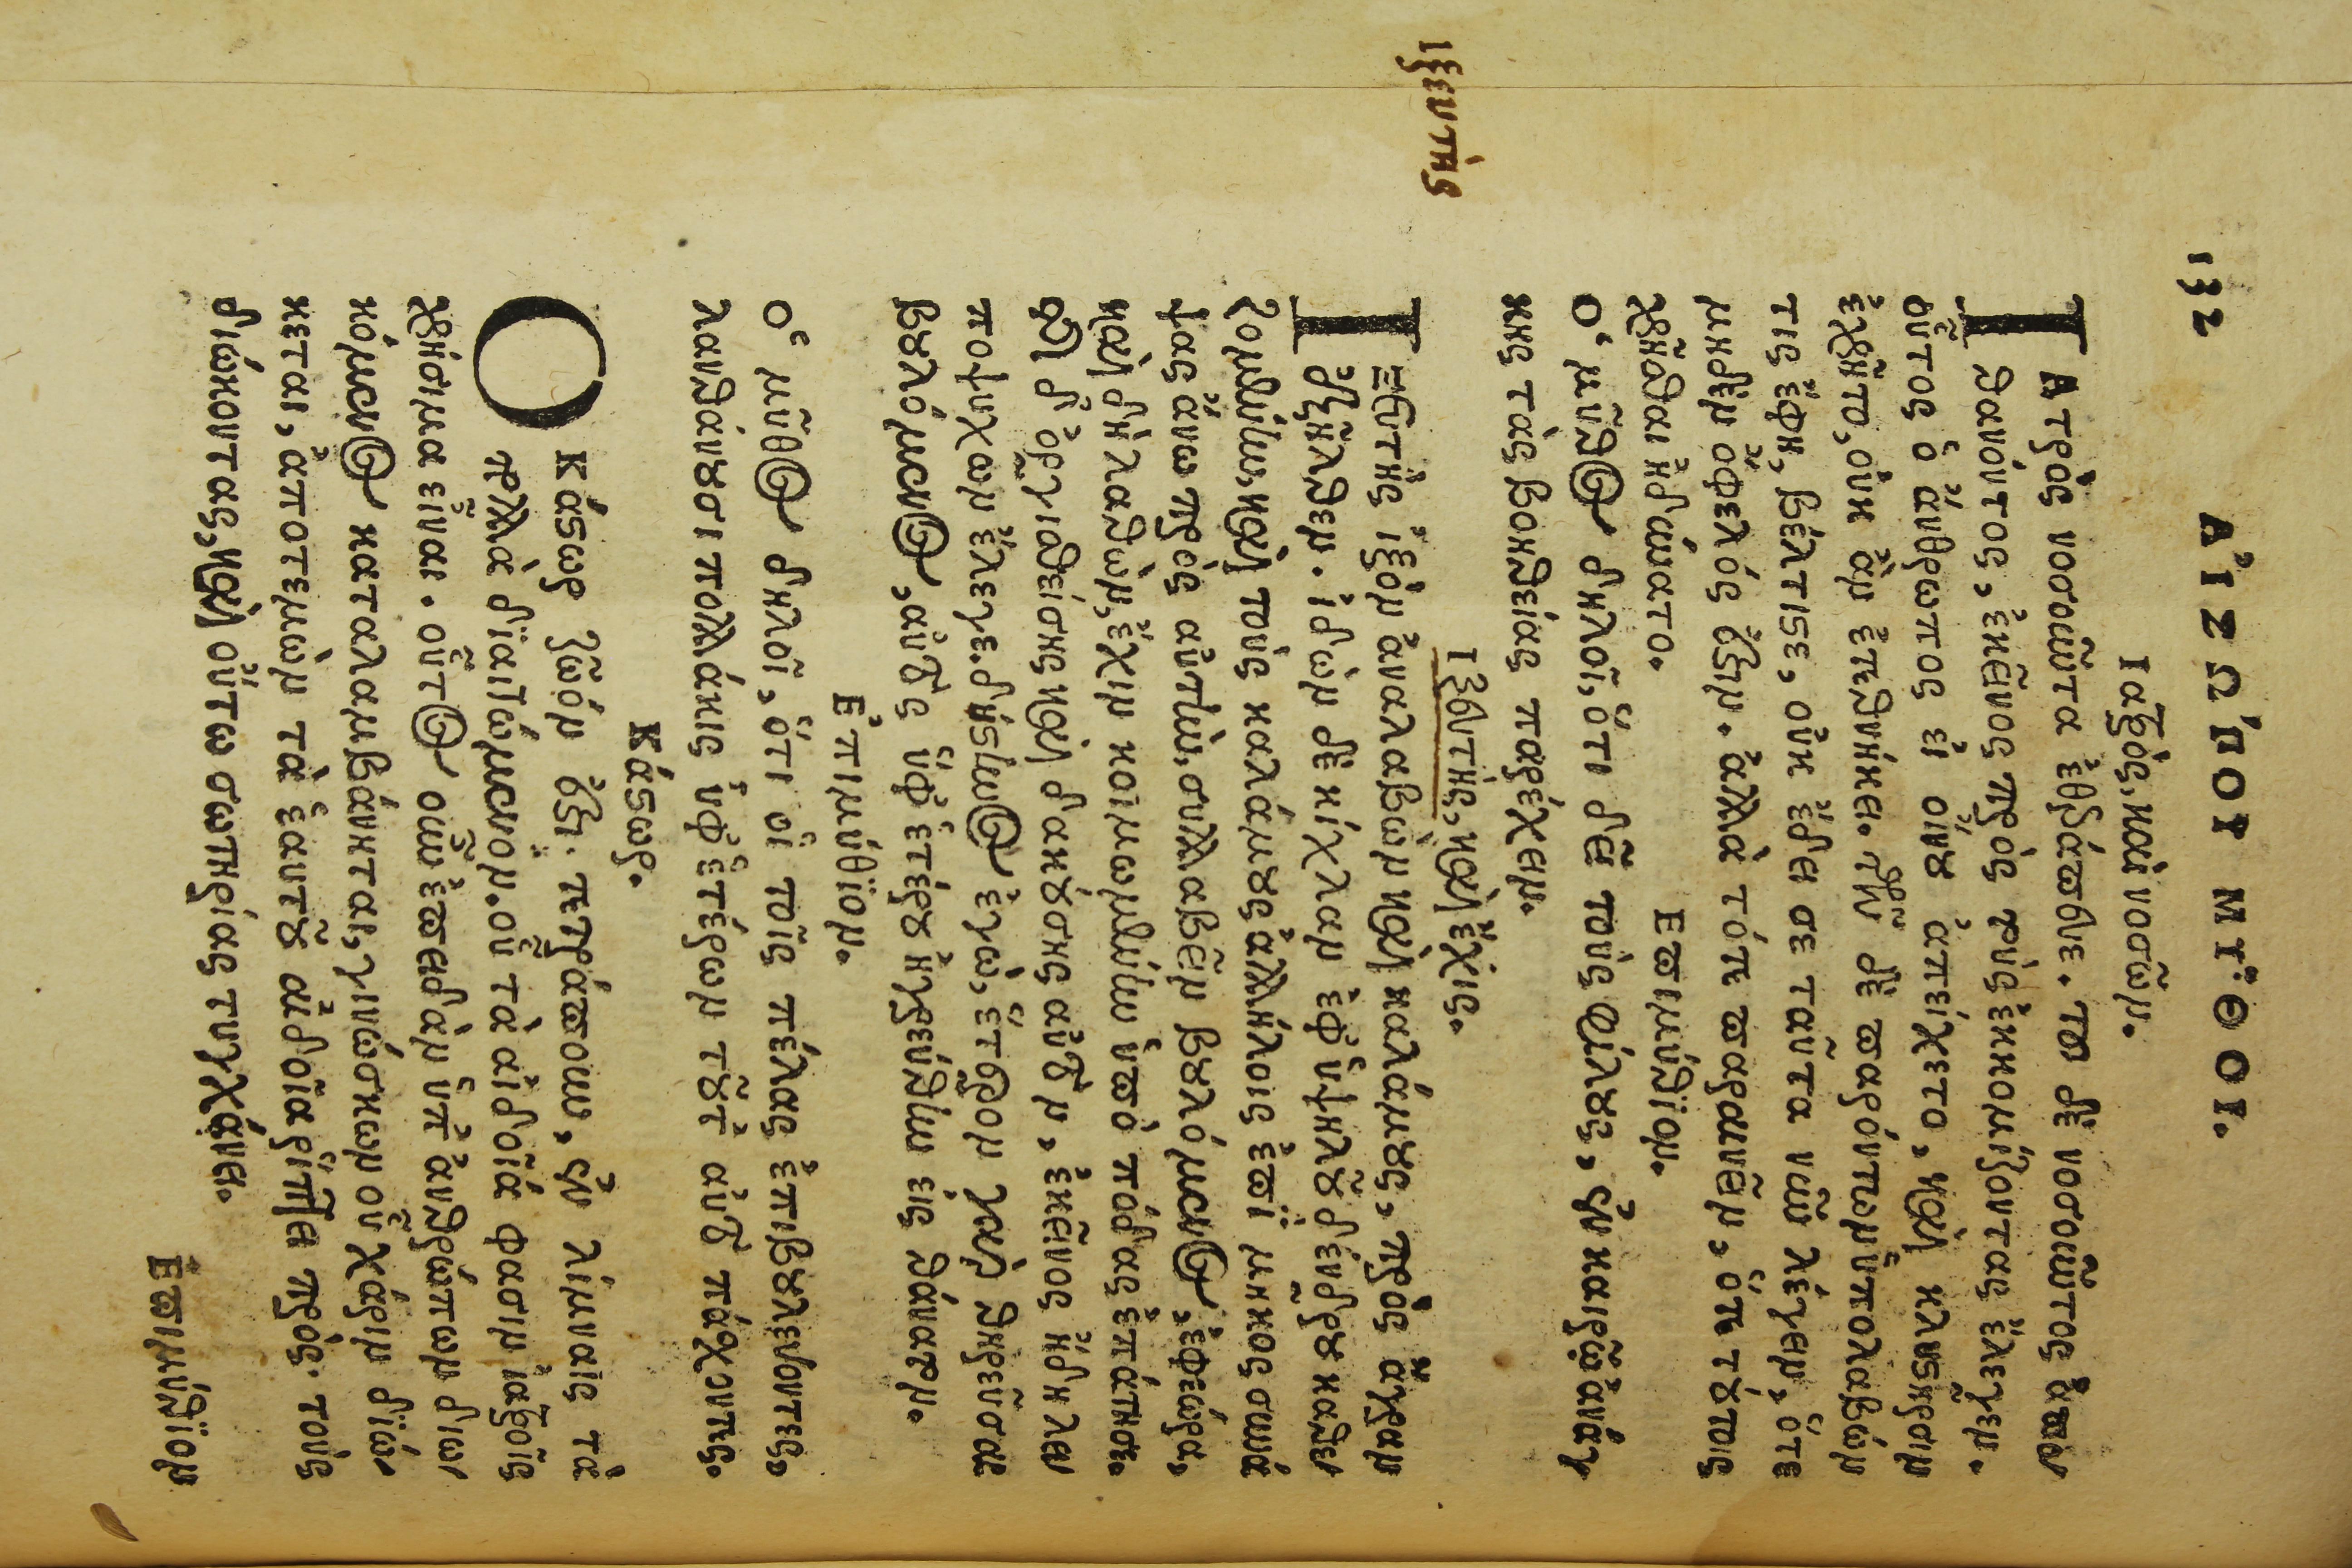 132 ΑἸΣΩ΄ΠΟΥ ΜΥ͂ΘΟΙ.
Ἰατρὸς, καὶ νοσῶν.
Ἰατρὸς νοσοῦντα ἐθεράπευε. τοῦ δὲ νοσοῦντος ἀπο
θανόντος, ἐκεῖνος πρὸς τοὺς ἐκκομίζοντας ἔλεγεν.
οὗτος ὁ ἄνθρωπος εἰ οἴνου ἀπείχετο, καὶ κλυστῆρσιν
ἐχρῆτο, οὐκ ἂν ἐτεθνήκει. τῶν δὲ παρόντων ὑπολαβών
τις ἔφη, βέλτιστε, οὐκ ἔδει σε ταῦτα νῦν λέγειν, ὅτε
μηδὲν ὄφελός ἐστιν. ἀλλὰ τότε παραινεῖν, ὅτε τούτοις
χρῆσθαι ἠδύνατο.
Ἐπιμύθιον.
Ὁ μῦθος δηλοῖ, ὅτι δεῖ τοὺς φίλους, ἐν καιρῷ ἀνάγ
κης τὰς βοηθείας παρέχειν.
Ἰξευτὴς, καὶ ἔχις.
ἰξευτὴς
Ἰξευτὴς ἰξὸν ἀναλαβὼν καὶ καλάμους, πρὸς ἄγραν
ἐξῆλθεν. ἰδὼν δὲ κίχλαν ἐφ' ὑψηλοῦ δένδρου καθε
ζομένην, καὶ τοὺς καλάμους ἀλλήλοις ἐπὶ μῆκος συνά
ψας ἄνω πρὸς αὐτὴν, συλλαβεῖν βουλόμενος, ἐφεώρα.
καὶ δὴ λαθὼν, ἔχιν κοιμωμένην ὑπὸ πόδας ἐπάτησε.
τῆς δ' ὀργισθείσης καὶ δακούσης αὐτὸν, ἐκεῖνος ἤδη λει
ποψυχῶν ἔλεγε. δύστηνος ἐγὼ, ἕτερον γὰρ θηρεῦσαι
βουλόμενος, αὐτὸς ὑφ' ἑτέρου ἠγρεύθην εἰς θάνατον.
Ἐπιμύθιον.
Ὁ μῦθος δηλοῖ, ὅτι οἱ τοῖς πέλας ἐπιβουλεύοντες,
λανθάνουσι πολλάκις ὑφ' ἑτέρων τοῦτ' αὐτὸ πάσχοντες.
Κάστωρ.
Ὁ Κάστωρ ζῷόν ἐστι. τετράπουν, ἐν λίμναις τὰ
πολλὰ διαιτώμενον. οὗ τὰ αἰδοῖα φασὶν ἰατροῖς
χρήσιμα εἶναι. οὗτος οὖν ἐπειδὰν ὑπ' ἀνθρώπων διω
κόμενος καταλαμβάνηται, γινώσκων οὗ χάριν διώ
κεται, ἀποτεμὼν τὰ ἑαυτοῦ αἰδοῖα ῥίπτει πρὸς τοὺς
διώκοντας, καὶ οὕτω σωτηρίας τυγχάνει.
Ἐπιμύθιον